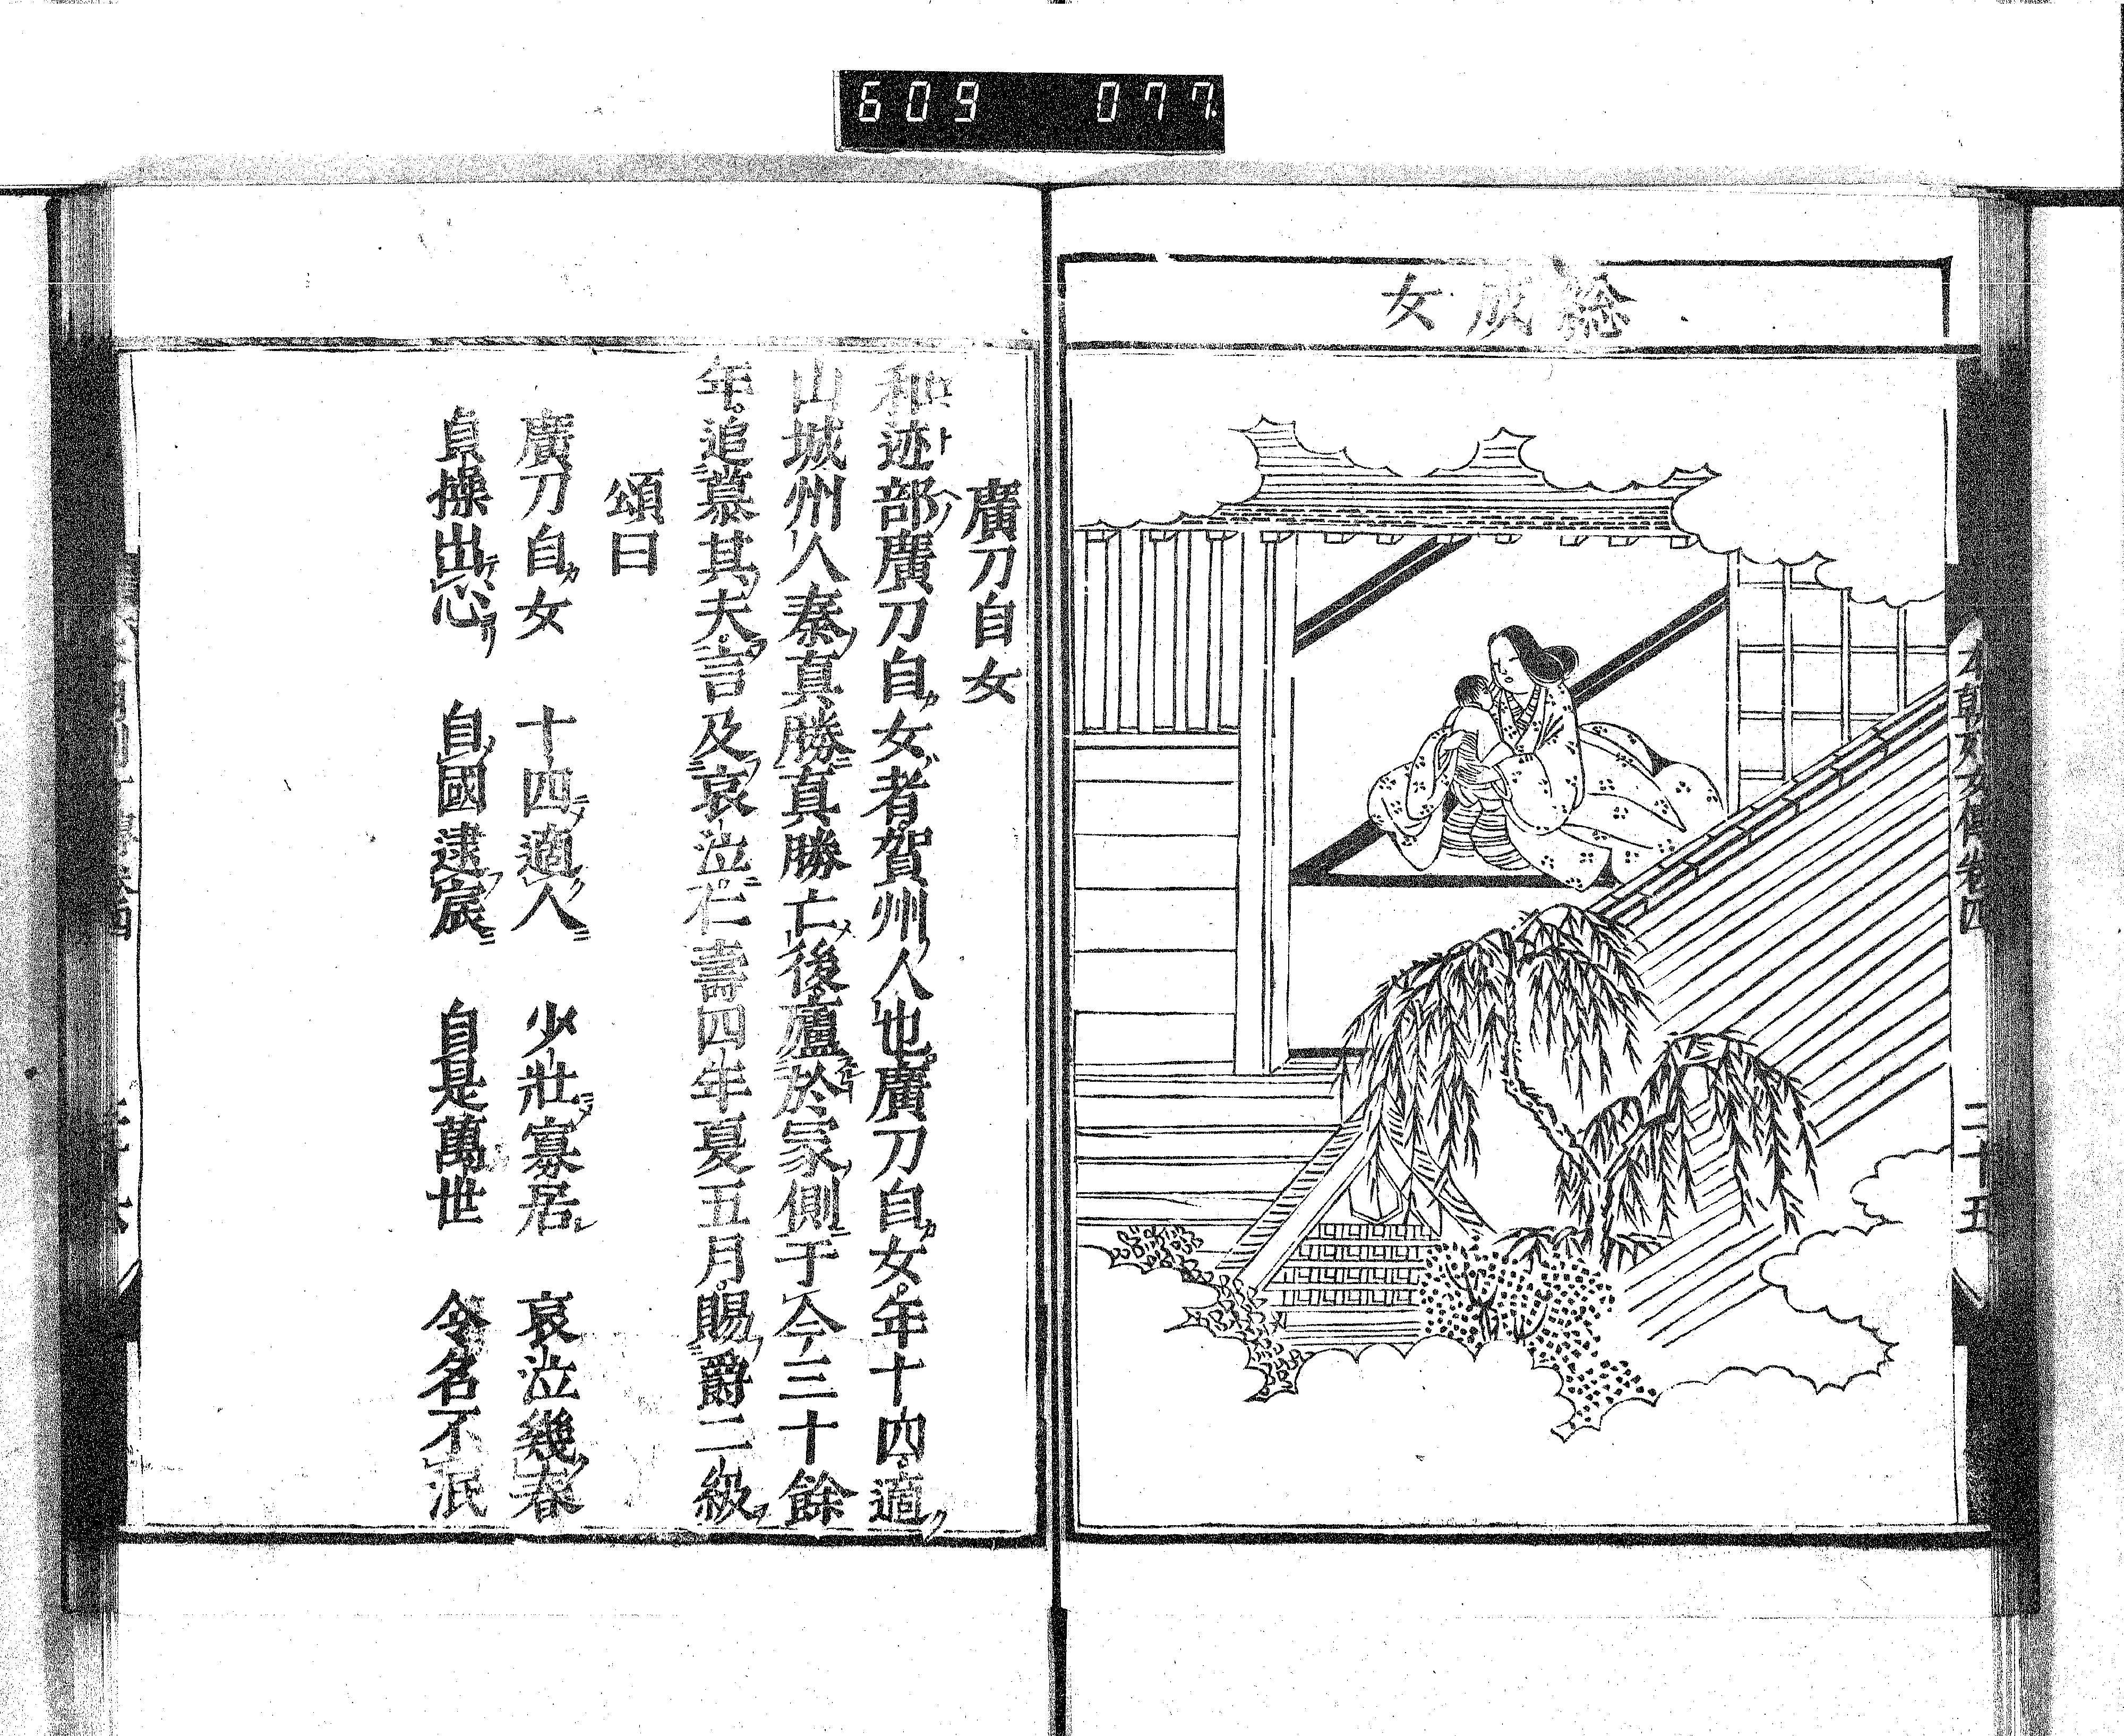 609 077.
総成女
本朝列女傳卷四
二十五
廣刀自女
和迹部廣刀自女者賀州人也廣刀自女年十四適
山城州人秦真勝真勝亡後廬於冢側于今三十餘
年追慕其夫言及哀泣仁壽四年夏五月賜爵二級
頌曰
廣刀自女 十四適人 少壯寡居 哀泣幾春
貞操出心 自國逮宸 自是萬世 令名不泯